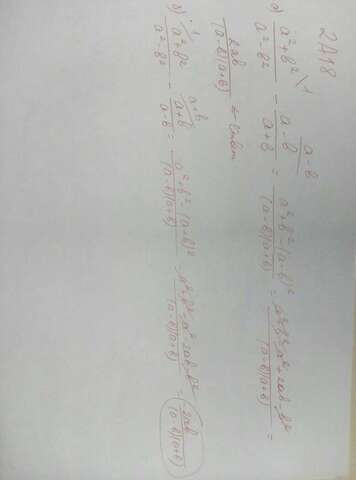 2A18
a) (a²+b²)/(a²-b²) \1 - (a-b)/(a+b) \a-b = (a²+b²-(a-b)²)/((a-b)(a+b)) = (a²+b²-a²+2ab-b²)/((a-b)(a+b)) =
2ab/((a-b)(a+b))
(a²+b²)/(a²-b²) \1 - (a+b)/(a-b) \a+b = (a²+b²-(a+b)²)/((a-b)(a+b)) = (a²+b²-a²-2ab-b²)/((a-b)(a+b)) = 2ab/((a-b)(a+b))